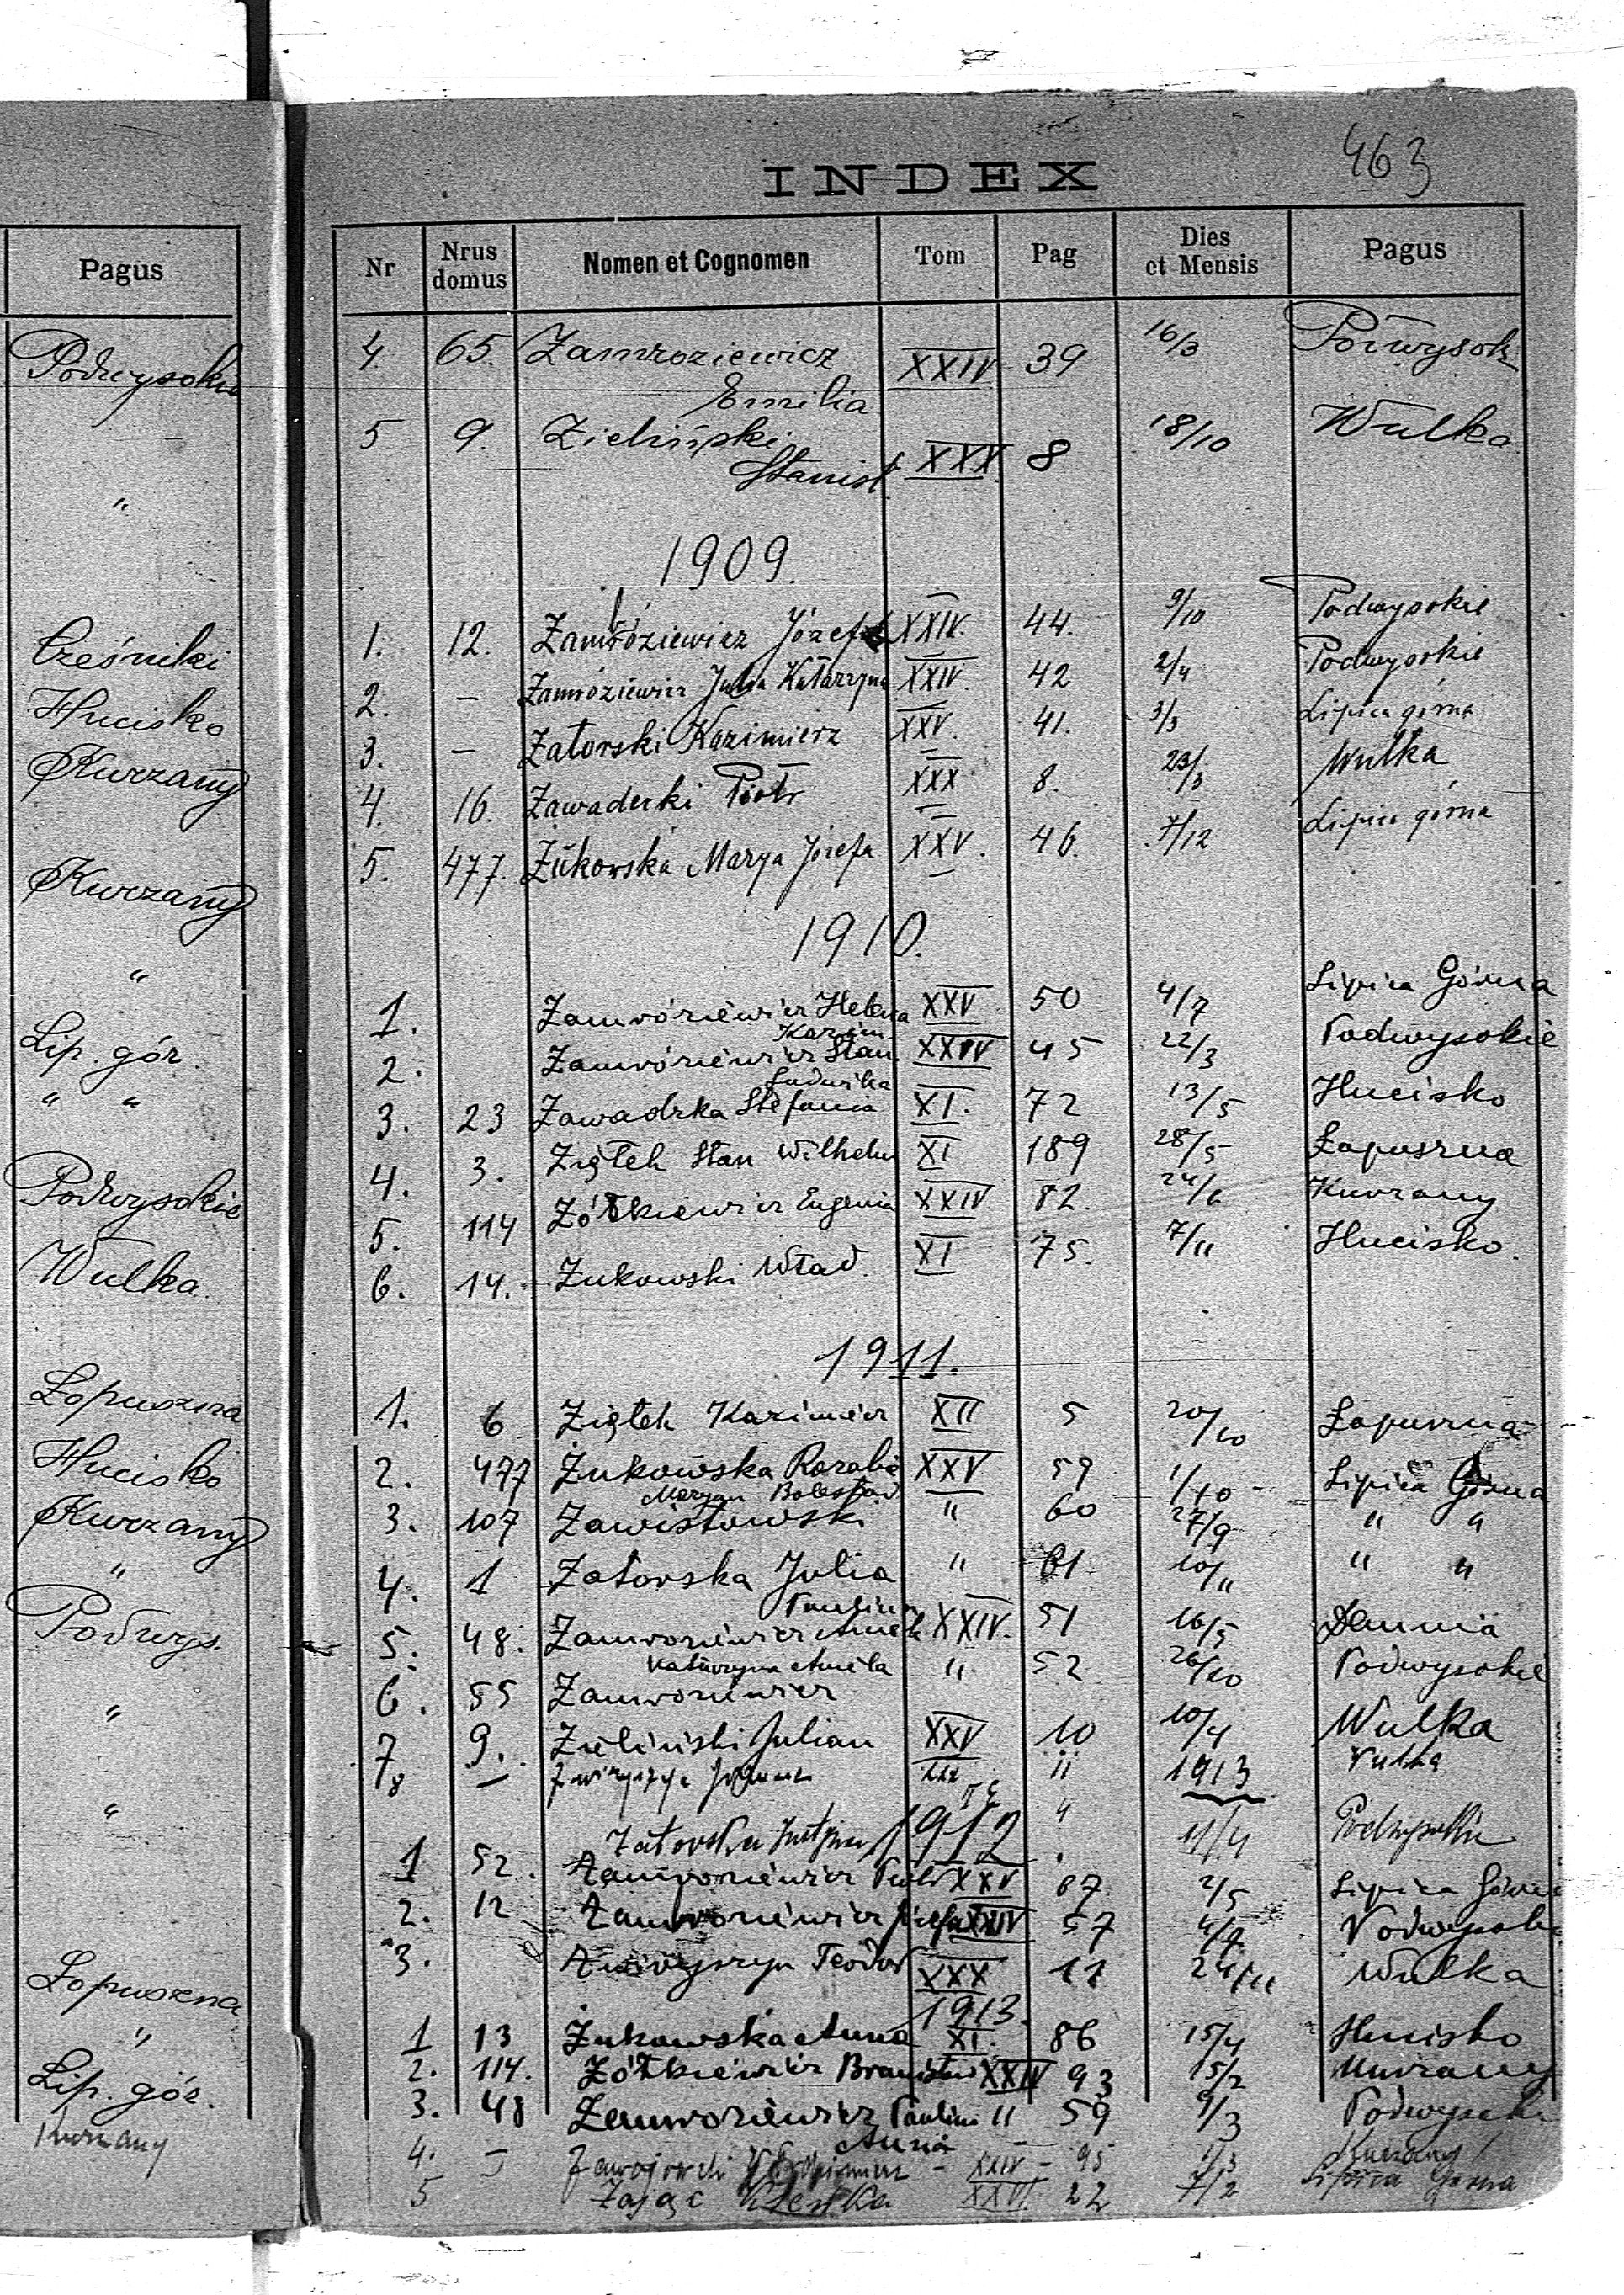 Pagus
Podwysokie
"
"
Cześniki
Hucisko
Kurzany
Kurzany
"
Lip. gór.
" "
Podwysokie
Wulka
Łopuszna
Hucisko
Kurzany
"
Podwys.
"
"
Łopuszna
"
Lip. gór.
Kurzany
463
INDEX
Nr Nrus domus Nomen et Cognomen Tom Pag Dies et Mensis Pagus
4. 65. Zamroziewicz XXIV 39 16/3 Podwysok
Emilia
5 9. Zieliński XXX 8 18/10 Wulka
Stanisł.
1909.
1. 12. Zamróziewicz Józef XXIV. 44. 9/10 Podwysokie
2. — Zamróziewicz Julia Katarzyna XXIV. 42 2/4 Podwysokie
3. — Zatorski Kazimierz XXV. 41. 3/3 Lipica górna
4. 16. Zawadecki Piotr XXX 8. 23/3 Wulka
5. 477. Żukowska Marya Józefa XXV. 46. 7/12 Lipica górna
1910.
1. Zamróziewicz Helena XXV 50 4/7 Lipica Górna
Kazim
2. Zamróziewicz Stan XXIV 45 22/3 Podwysokie
Ludwika
3. 23 Zawadzka Stefania XI. 72 13/5 Hucisko
4. 3. Ziątek Stan Wilhelm XI 189 28/5 Łapuszna
5. 114 Żółkiewicz Eugenia XXIV 82. 24/6 Kurzany
6. 14. Żukowski Wład XI 75. 7/11 Hucisko.
1911.
1. 6 Ziątek Kazimierz XII 5 20/10 Łapuszna
2. 477 Żukowska Rozalia XXV 59 1/10 Lipica Górna
Maryan Bolesław
3. 107 Zawistowski " 60 27/9 " "
4. 1 Zatorska Julia " 61 10/11 " "
Paulina
5. 48. Zamroziewicz XXIV. 51 16/5
Katarzyna Aniela
6. 55 Zamroziewicz ". 52 26/10 Podwysokie
7 9. Zieliński Julian XXV 10 10/4 Wulka
8 — 11 1913 Wulka
1912
Zatorska Justyna 11/4
1 52. Zamroziewicz Piotr XXV 87 2/5 Lipica Górna
2. 12 Zamroziewicz Józefa XXIV 57 4/7 Podwysok
3. Teodor XXX 11 24/11 Wulka
1913.
1 13 Żukowska Anna XI. 86 15/4 Hucisko
2. 114. Żółkiewicz Bronisław XXIV 93 15/2 Kurzany
3. 48 Zamroziewicz Paulina " 59 9/3 Podwysok
Anna
4. — XXIV - 95 1/3 Kurzany
5 Zając XXV. 22 7/2 Lipica Gorna